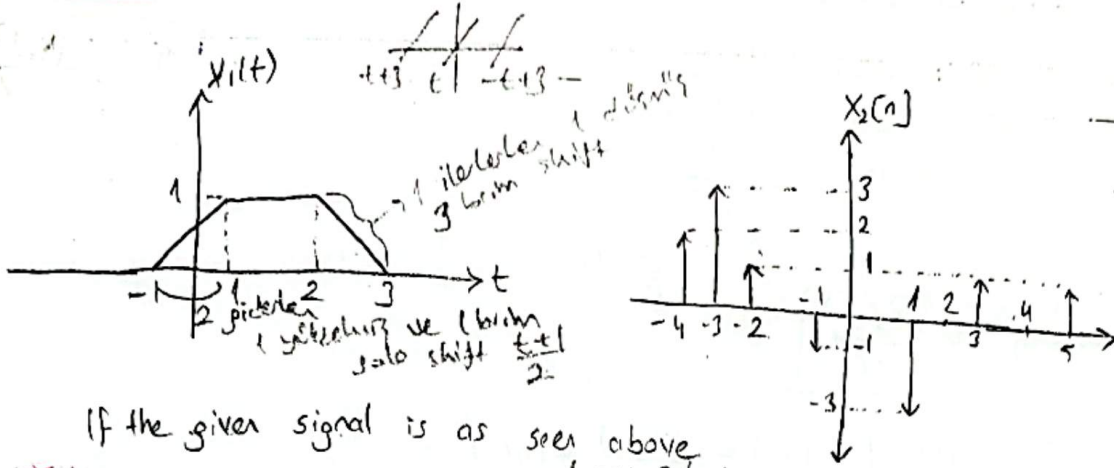 x₁(t)
-t+3 t -t+3
1 ilerlerken 1 düşmüş
3 birim shift
1
-1 1 2 3 t
2 giderken
1 yükselmiş ve 1 birim
sola shift t+1/2
X₂[n]
3
2
1
-4 -3 -2 -1 1 2 3 4 5
-1
-3
If the given signal is as seen above